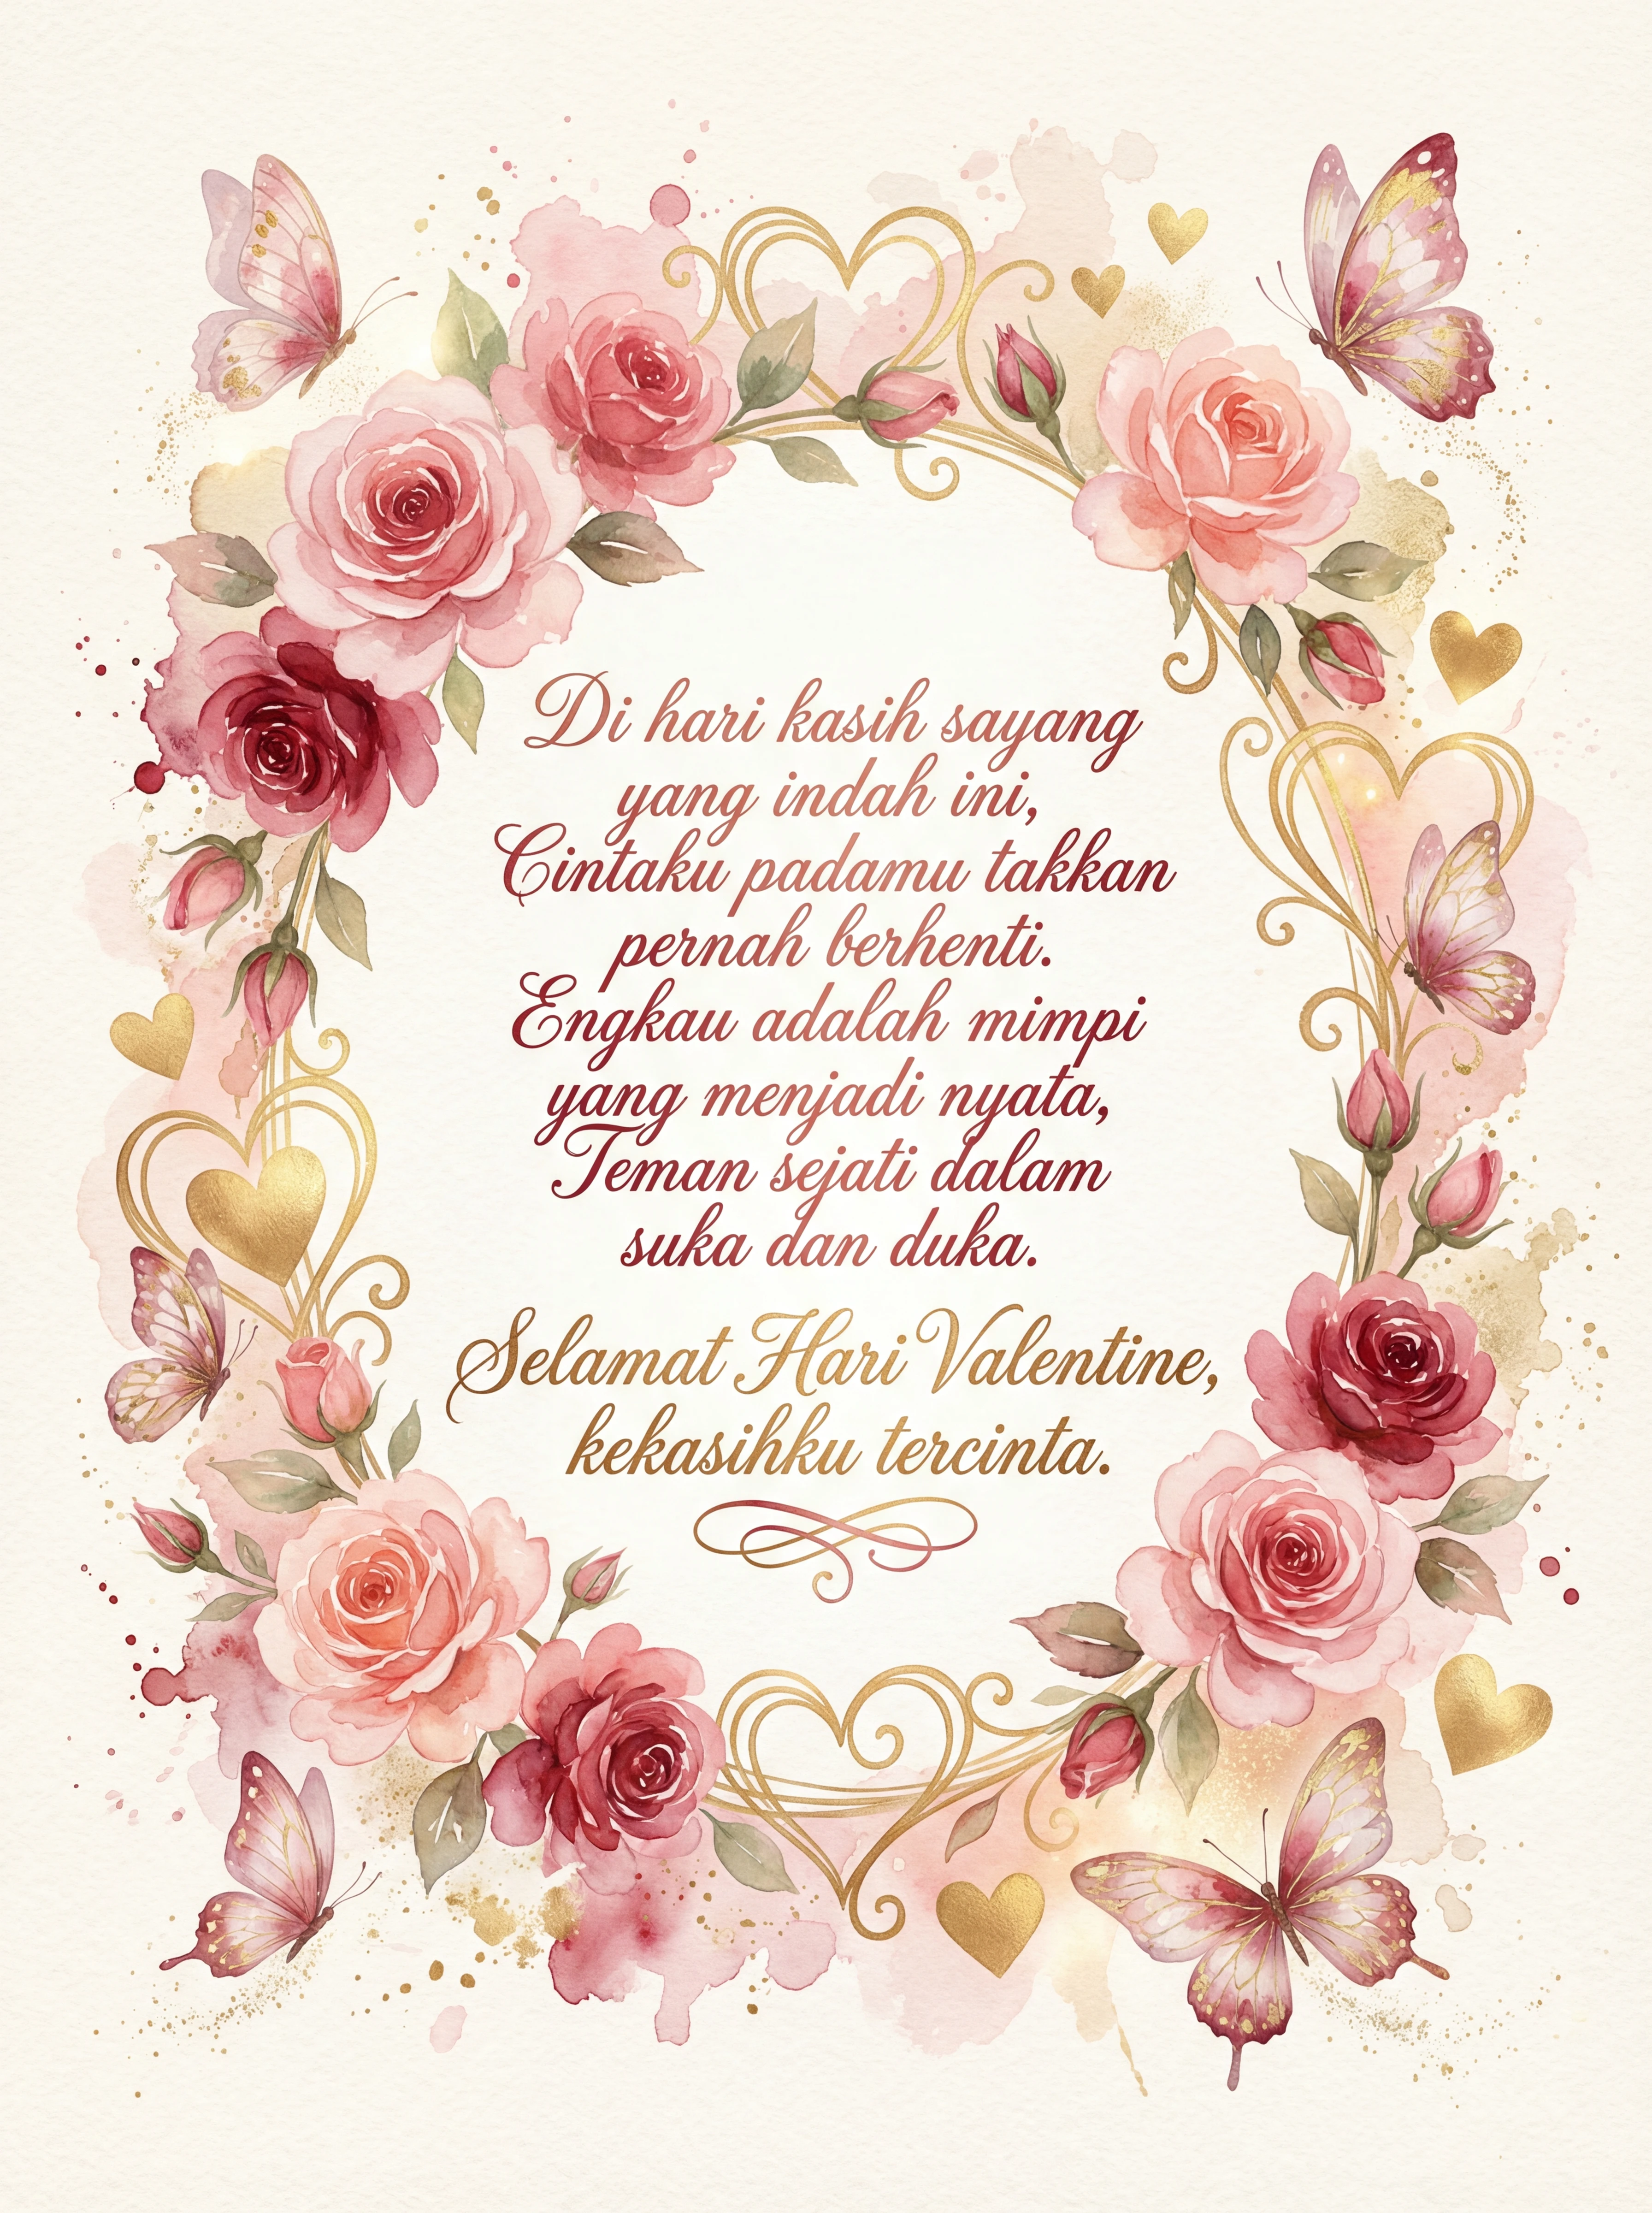 Di hari kasih sayang
yang indah ini,
Cintaku padamu takkan
pernah berhenti.
Engkau adalah mimpi
yang menjadi nyata,
Teman sejati dalam
suka dan duka.
Selamat Hari Valentine,
kekasihku tercinta.